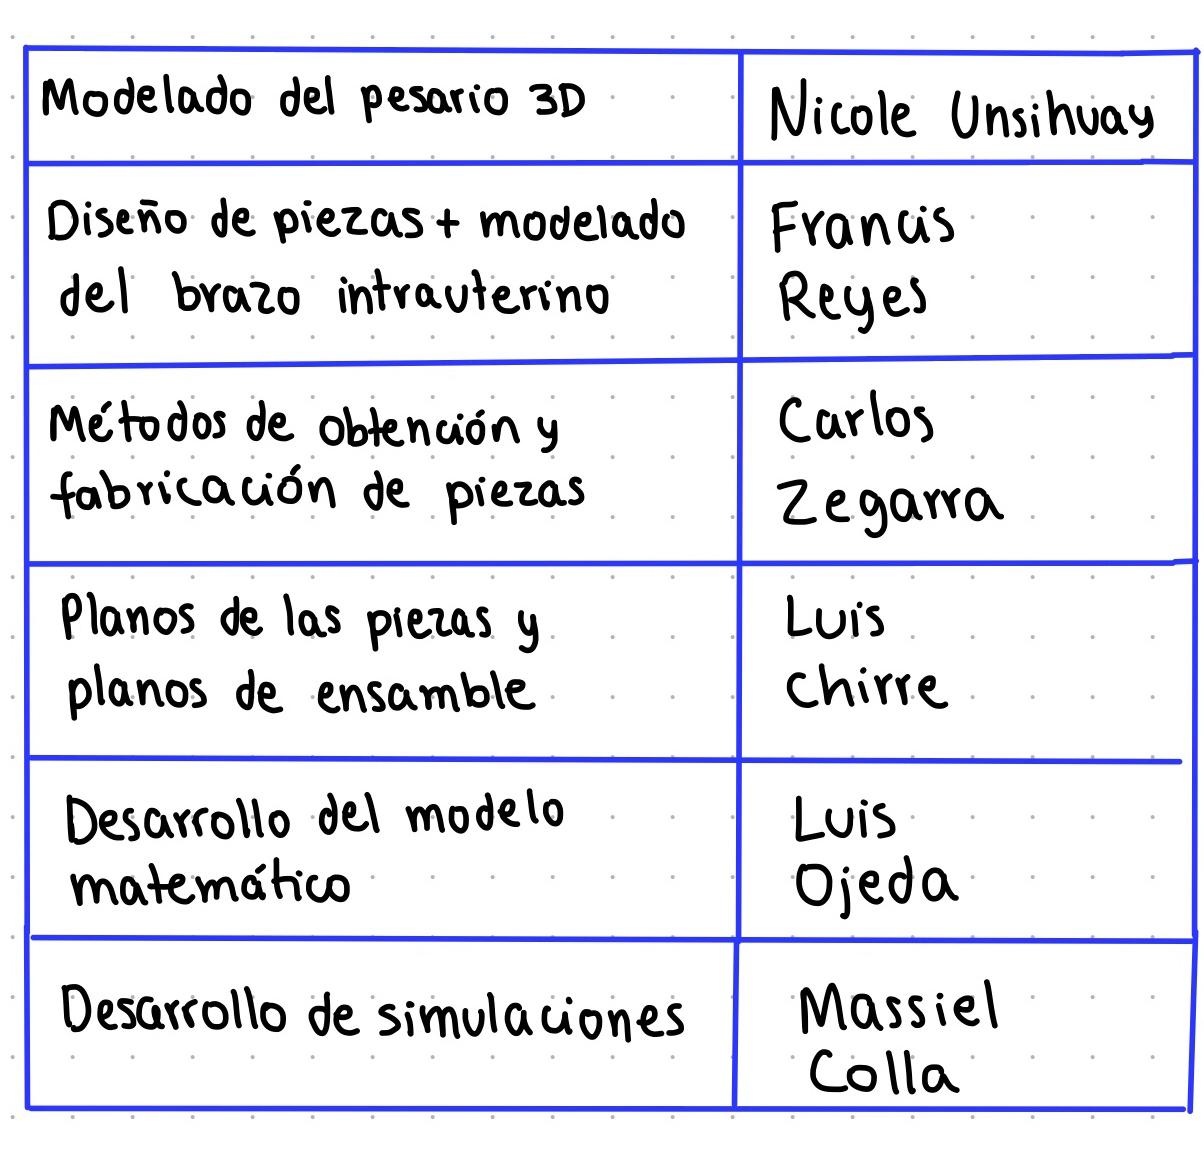 Modelado del pesario 3D
Nicole Unsihuay
Diseño de piezas + modelado
del brazo intrauterino
Francis
Reyes
Métodos de obtención y
fabricación de piezas
Carlos
Zegarra
Planos de las piezas y
planos de ensamble
Luis
Chirre
Desarrollo del modelo
matemático
Luis
Ojeda
Desarrollo de simulaciones
Massiel
Colla